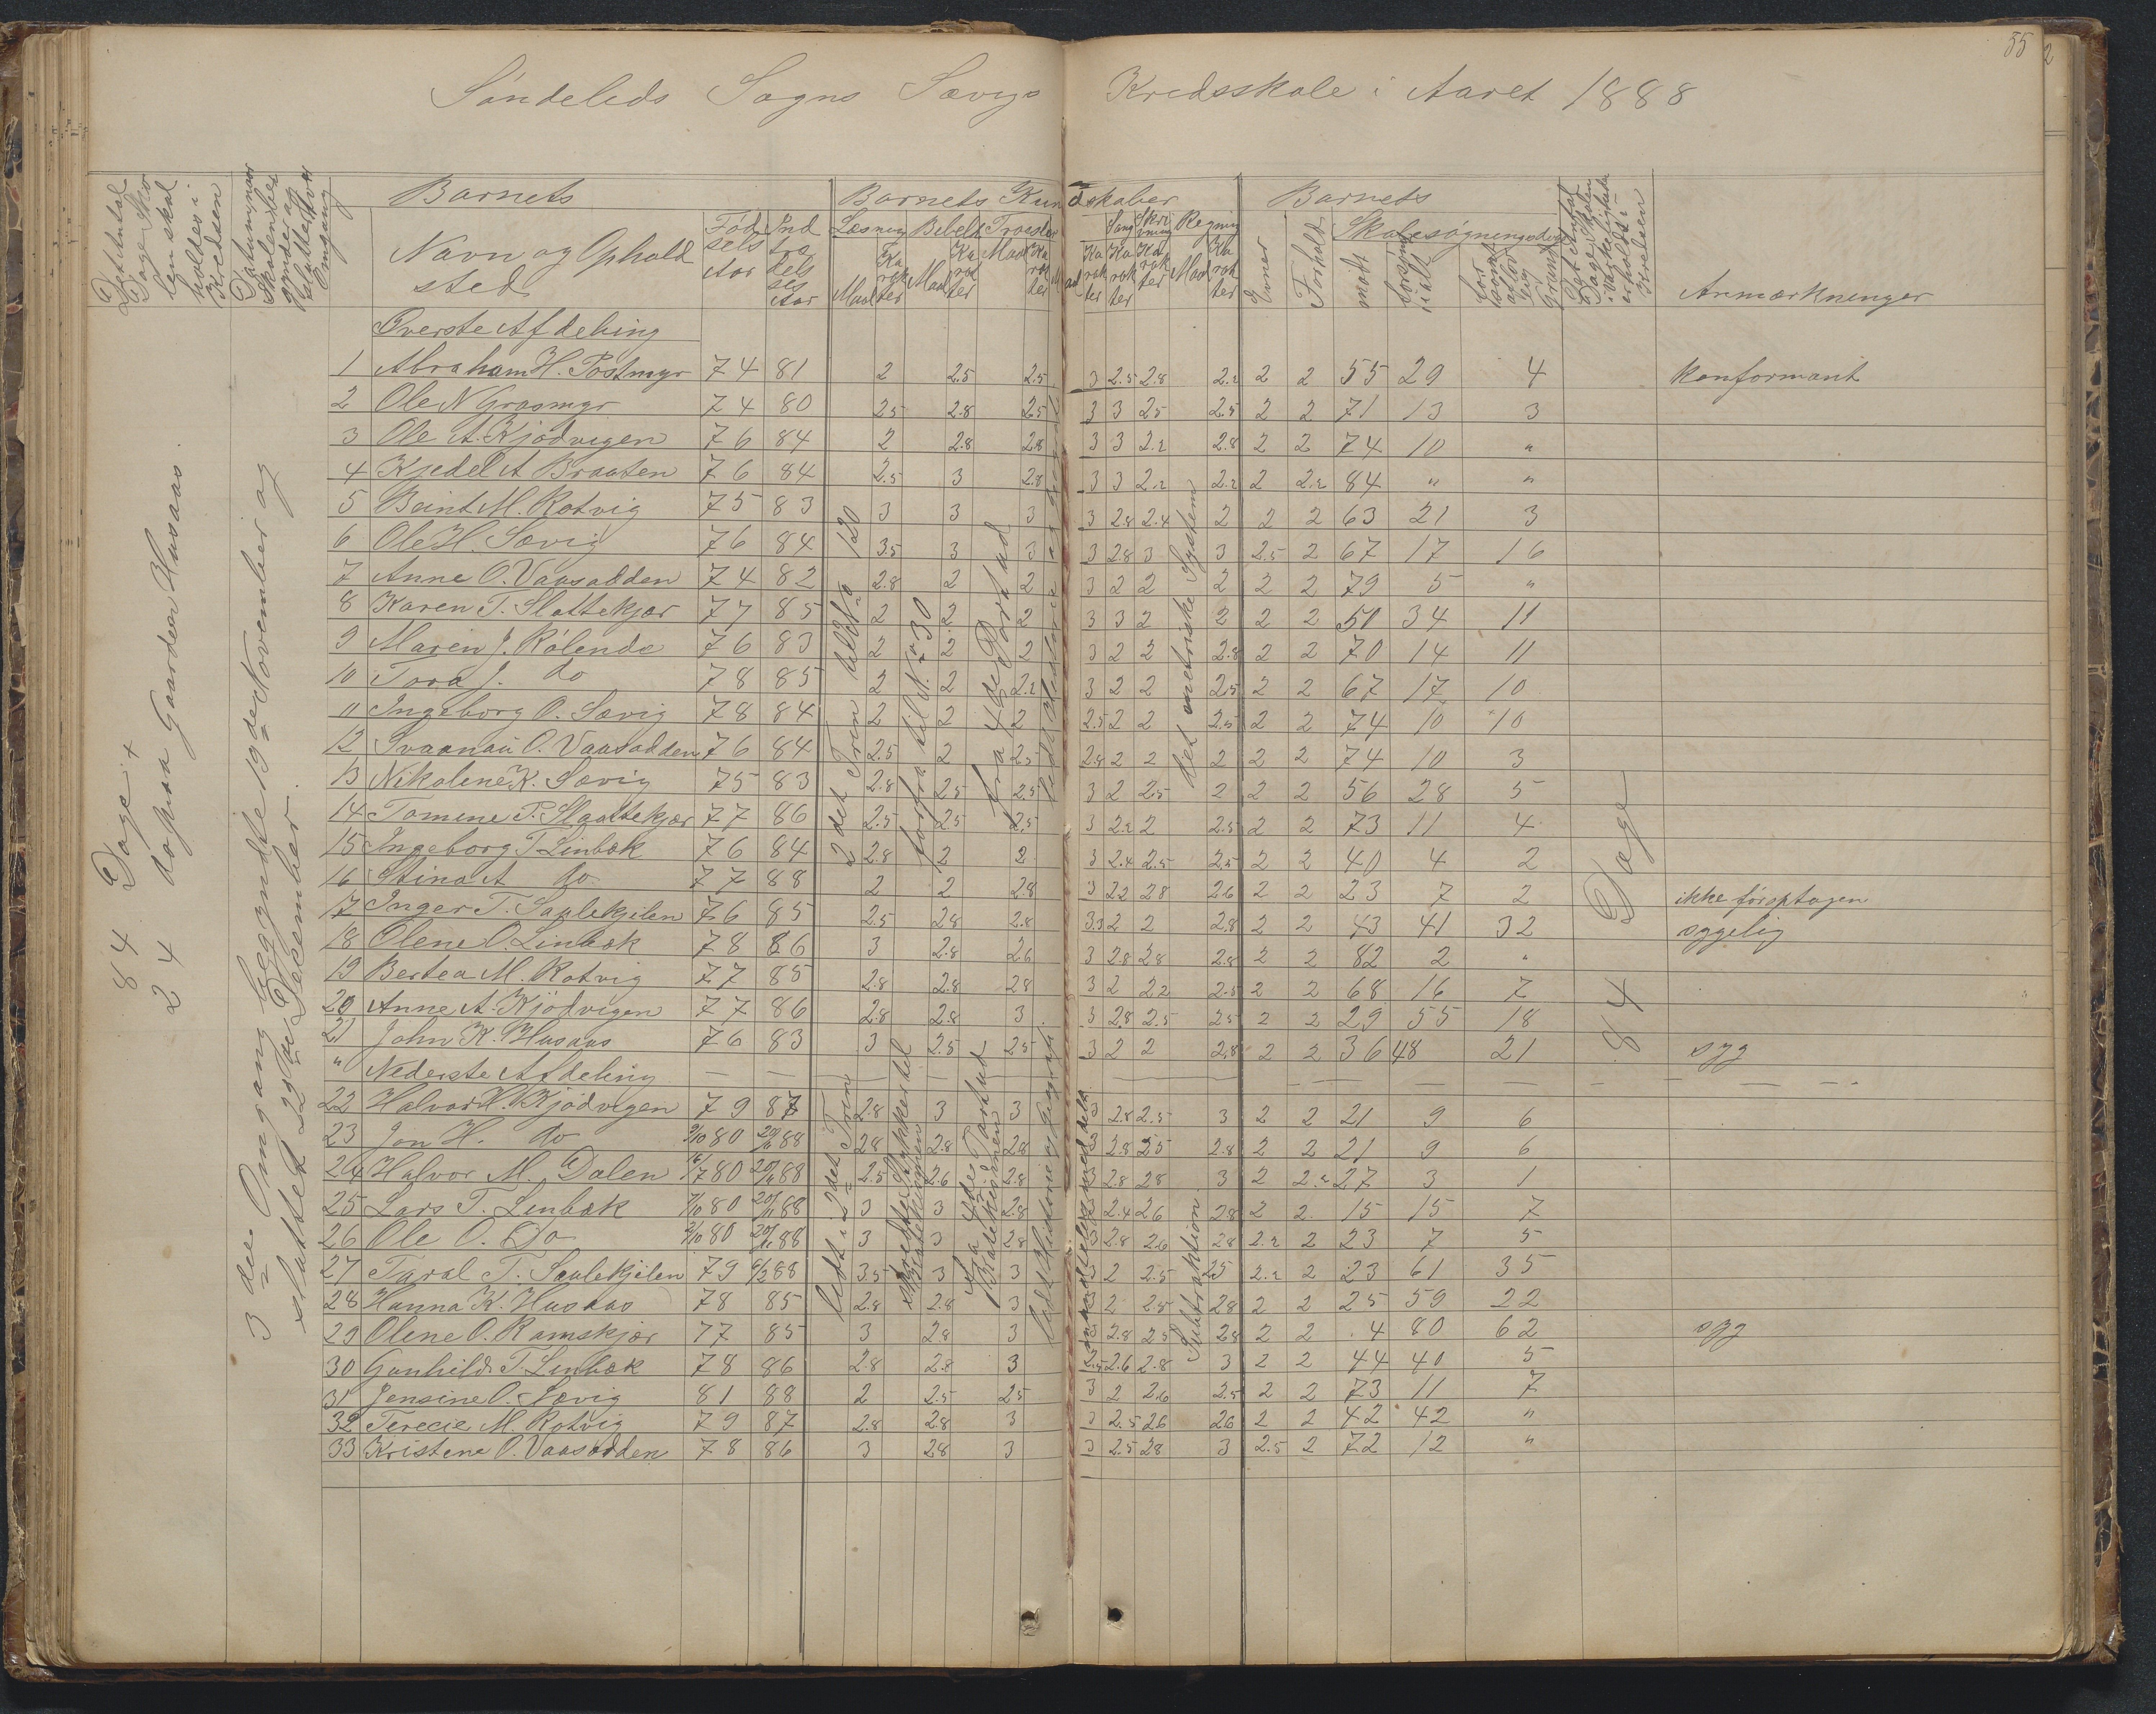 55
Söndeleds Sogns Sævigs Kredsskole i Aaret 1888
Det Antal Dage Skolen skal holdes i Kredsen
Datum, naar Skolen begynder og slutter hver Omgang
Barnets
Navn og Ophold sted
Födselsaar
Indtrædelsesaar
Barnets Kundskaber
Læsning Bibelh Troeslær
Maal Karakter Maal Karakter Maal Karakter
Sang Skrivning Regning
Karakter Karakter Karakter Maal Karakter
Barnets
Evner Forhold
Skolesøgningsdage
mødt forsømt ialt
Det Antal Dage Skolen i Virkeligheden er holdt i Kredsen
Anmærkninger
84 Dage +
24 do paa Gaarden Husaas.
3die Omgang begyndte 19de November og
sluttet 22de Desember.
Øverste Afdeling
1 Abraham H. Postmyr 74 81 2 2.5 2.5 3 2.5 2.8 2.2 2 2 55 29 4 konformant
2 Ole N Grasmyr 74 80 2.5 2.8 2.5 3 3 2.5 2.5 2 2 71 13 3
3 Ole A. Kjödvigen 76 84 2 2.8 2.8 3 3 2.2 2.8 2 2 74 10 "
4 Kjedel A Braaten 76 84 2.5 3 2.8 3 3 2.2 2.2 2 2.2 84 " "
5 Beint M. Rotvig 75 83 3 3 3 3 2.8 2.4 2 2 2 63 21 3
6 Ole H. Sævig 76 84 3.5 3 3 3 2.8 3 3 2.5 2 67 17 16
7 Anne O. Vaasadden 74 82 2.8 2 2 3 2 2 2 2 2 79 5 "
8 Karen T. Slattekjær 77 85 2 2 2 3 3 2 2 2 2 50 34 11
9 Maren J. Rölende 76 83 2 2 2 3 2 2 2.8 2 2 70 14 11
10 Tora J. do 78 85 2 2 2.2 3 2 2 2.5 2 2 67 17 10
11 Ingeborg O. Sævig 78 84 2 2 2 2.5 2 2 2.5 2 2 74 10 10
12 Svaanau O. Vaasadden 76 84 2.5 2 2.5 2.8 2 2 2 2 2 74 10 3
13 Nikoline K. Sævig 75 83 2.8 2.5 2.5 3 2 2.5 2 2 2 56 28 5
14 Tomine P. Slaattekjær 77 86 2.5 2.5 2.5 3 2.2 2 2.5 2 2 73 11 4
15 Ingeborg T Linbæk 76 84 2.8 2 2 3 2.4 2.5 2.5 2 2 40 4 2
16 Stina A do. 77 88 2 2 2.8 3 2.2 2.8 2.6 2 2 23 7 2 ikke först optagen
17 Inger T. Saplekjilen 76 85 2.5 2.8 2.8 3.3 2 2 2.8 2 2 43 41 32 sygelig
18 Olene O. Linbæk 78 86 3 2.8 2.6 3 2.8 2.8 2.8 2 2 82 2 "
19 Bertea M. Rotvig 77 85 2.8 2.8 2.8 3 2 2.2 2.5 2 2 68 16 7
20 Anne A. Kjödvigen 77 86 2.8 2.8 3 3 2.8 2.5 2.5 2 2 29 55 18
21 John K. Husaas 76 83 3 2.5 2.5 3 2 2 2.8 2 2 36 48 21 syg
" Nederste Afdeling
22 Halvor H. Kjödvigen 79 87 2.8 3 3 3 2.8 2.5 3 2 2 21 9 6
23 Jon H. do 9/10 80 20/11 88 2.8 2.8 2.8 3 2.8 2.5 2.8 2 2 21 9 6
24 Halvor M. Dalen 80 20/11 88 2.5 2.6 2.8 3 2.8 2.8 3 2 2.2 27 3 1
25 Lars T. Linbæk 7/10 80 20/11 88 3 3 2.8 3 2.4 2.6 2.8 2 2 15 15 7
26 Ole O. Do 2/10 80 20/11 88 3 3 2.8 3 2.8 2.6 2.8 2.2 2 23 7 5
27 Taral T. Saplekjilen 79 6/2 88 3.5 3 3 3 2 2.5 2.5 2.2 2 23 61 35
28 Hanna K. Husaas 78 85 2.8 2.8 3 3 2 2.5 2.8 2 2 25 59 22
29 Olene O. Ramskjær 77 85 3 2.8 3 3 2.8 2.5 2.8 2 2 4 80 62 syg
30 Gunhild T. Linbæk 78 86 2.8 2.8 3 2.5 2.6 2.8 3 2 2 44 40 5
31 Jensine O. Sævig 81 88 2 2.5 2.5 3 2 2.6 2.5 2 2 73 11 7
32 Terecie M. Rotvig 79 87 2.8 2.8 3 3 2.5 2.6 2.6 2 2 42 42 "
33 Kristene O. Vaasadden 78 86 3 2.8 3 3 2.5 2.8 3 2.5 2 72 12 "
2det Trin til No 120
forfra til No 30
fra 4de Part ad
det metriske System
84 Dage
læst i 2det Trin
fra 4de Part ud
Subtraktion